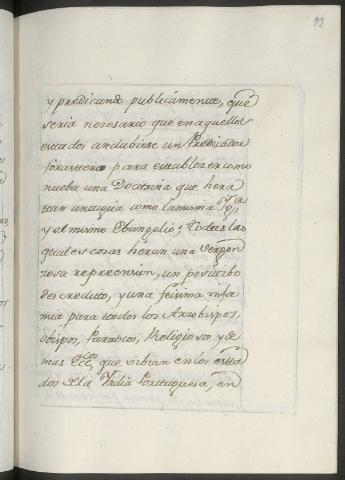 73
y predicando publicamente, que
seria neresario que en aquellos
estados andubiese un Predicador
forastero para establezer como
nueba una Doctrina que hera
tan antigua como la misma Ygª
y el mismo Ebangelio; todas las
quales cosas heran una vergon
zosa reprecension, un positibo
descredito, y una feisima infa
mia para todos los Arzobispos
obispos, Parrocos, Religiosos, y de
mas Eccᶜᵒˢ que vibian en los esta
dos de la Yndia Portuguesa, en